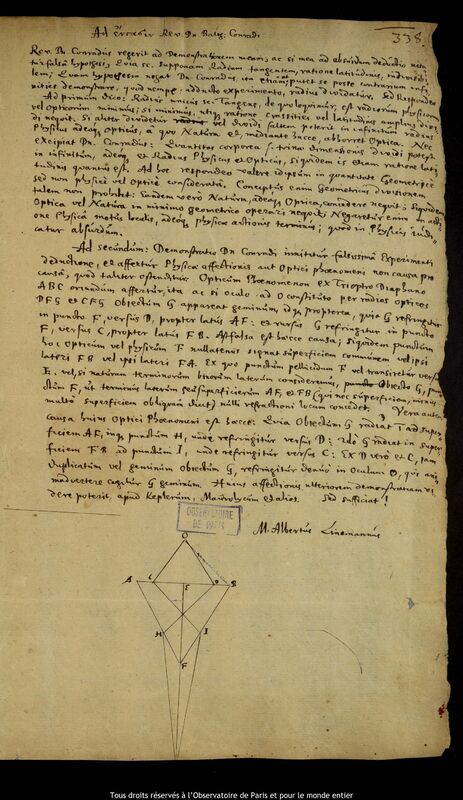 338.
Ad Rev. Dn. Balth. Conradi
Rev. Dn Conradus regerit ad Demonstrationem meam; ac si mea ad absurdum deductio nitatur falsâ hypothesi; Quia sc. supponam Radium tangentem, ratione latitudinis, indivisibilem; Quam hypothesin negat Dn Conradus, ita etiam
nities demonstrare, quod nempe, adducto experimento, radius dividatur. Sed Respondeo
Ad primum dico: Radius unicus sc. Tangens, de quo loquimur, est radiorum physicorum
vel opticorum minimus; si minimus, utiq; ratione crassitiei vel latitudinis amplius dividi nequit. Si aliter dividetur vel dividi saltem poterit in infinitum radius
Physicus adeoq; opticus, à quo Natura et, mediante hacce, abhorret Optica. Nec
excipiat Dn. Conradus: Quantitas corporea s. trinae dimensionis dividi potest
in infinitum, adeoq; et Radius Physicus et Opticus, siquidem is etiam ratione latitudinis quantus est. Ad hoc respondeo valere id ipsum in quantitate Geometricè
sed non physicè vel Opticè consideratâ. Conceptus enim Geometricus divisionem
talem non prohibet: Eandem verò Natura, adeoq; Optica, concedere nequit: Siquidem
Optica vel Natura in minimo geometrico operari nequit; Negaretur enim in actione Physicâ motus localis, adeoq; Physicae actionis terminus; quod in Physicis judicatur absurdum.
Ad secundum: Demonstratio Dn Conradi innititur falsissimâ Experimenti
deductione, et affertur Physicae affectionis aut Optici phaenomeni non causa pro
causâ, quod taliter ostenditur. Opticum Phaenomenon ex Trioptro Diaphano
ABC oriundum affertur, ita ac si oculo ad O constituto per radios opticos
DFG et CFG Objectum G appareat geminum, idq; propterea, quia G refringatur
in puncto F, versus D, propter latus AF: et rursus G refringitur in puncto
F, versus C, propter latus FB. At falsa est haecce causa; siquidem punctum
hoc Opticum vel physicum F nullatenus signat superficiem communem vel ipsi
lateri FB vel ipsi lateri FA. Ex quo punctum pellicidum F vel transiretur versus
E. vel, si naturam terminorum horum laterum consideremus, Objecto G, punctum F, ut terminus laterum seu superficierum AF, et FB (qui nec superficiem, minùs
multò superficiem obliquam ducit) nulli refractioni locum concedet. Vera autem
causa huius Optici Phaenomeni est haecce: Quia Objectum G radiat ad superficiem AF, inq; punctum H, unde refringitur versus D: Idem G radiat in superficiem FB ad punctum I, unde refringitur versus C: Ex D verò et C, tam
duplicatum vel geminum Objectum G, refringitur denuò in Oculum O, qui animadvertere cogitur G geminum. Huius affectionis ulteriorem demonstrationem videre poterit, apud Keplerum, Maurolycum et alios. Sed sufficiat!
OBSERVATOIRE
DE PARIS
M. Albertus Linemannus
O
A C E D B
H I
F
Tous droits réservés à l'Observatoire de Paris et pour le monde entier